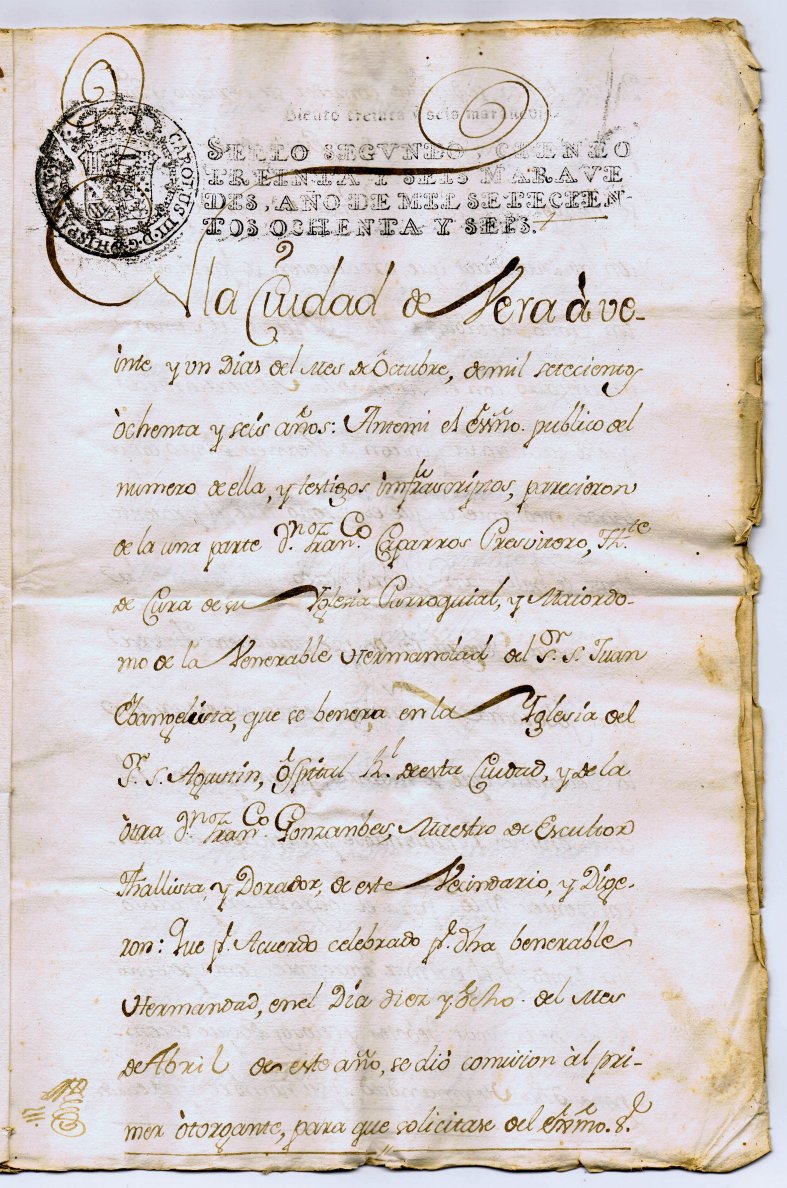 CAROLUS III D.G. HISPANIAR. REX
SELLO SEGVNDO, CIENTO
TREINTA Y SEIS MARAVE
DIS, AÑO DE MIL SETECIEN-
TOS OCHENTA Y SEIS.
En la Ciudad de Vera à ve-
inte y un Dias del Mes de Octubre, de mil setecientos
òchenta y seis años: Antemi el Essño. publico del
numero de ella, y testigos infrascriptos, parecieron
de la una parte Dn. Franco. Caparros Presvitero, Thte.
de Cura de su Yglesia Parroquial, y Maiordo-
mo de la Venerable Hermandad del Sr. S. Juan
Ebangelista, que se benera en la Yglesia del
Sr. S. Agustin, Ospital Rl. de esta Ciudad, y de la
òtra Dn. Franco. Gonzanbes, Maestro de Escultor
Thallista, y Dorador, de este Vecindario, y Dige-
ron: Que pr. Acuerdo celebrado pr. dha benerable
Hermandad, en el Dia diez y ocho del Mes
de Abril de este año, se diò comision àl pri-
mer òtorgante, para que solicitase del Exmo. Sr.